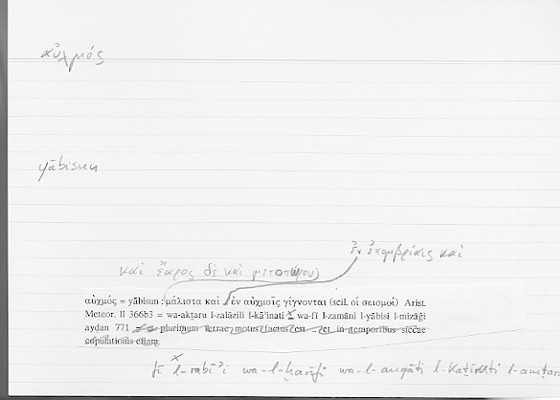 αὐχμός
yābisun
ἐν ἐπομβρίαις καὶ
καὶ ἔαρος δὲ καὶ μετοπώρου)
αὐχμός = yābisun : μάλιστα καὶ ἐν αὐχμοῖς γίγνονται (scil. οἱ σεισμοί) Arist.
Meteor. II 366b3 = wa-akṯaru l-zalāzili l-kāʾinati x wa-fī l-zamāni l-yābisi l-mizāǧi
ayḍan 771 plurimum terrae motus factus est et in temporibus siccae
complationis etiam.
fī l-rabīʿi wa-l-ḫarīfi wa-l-auqāti l-kaṯīrati l-amṭāri